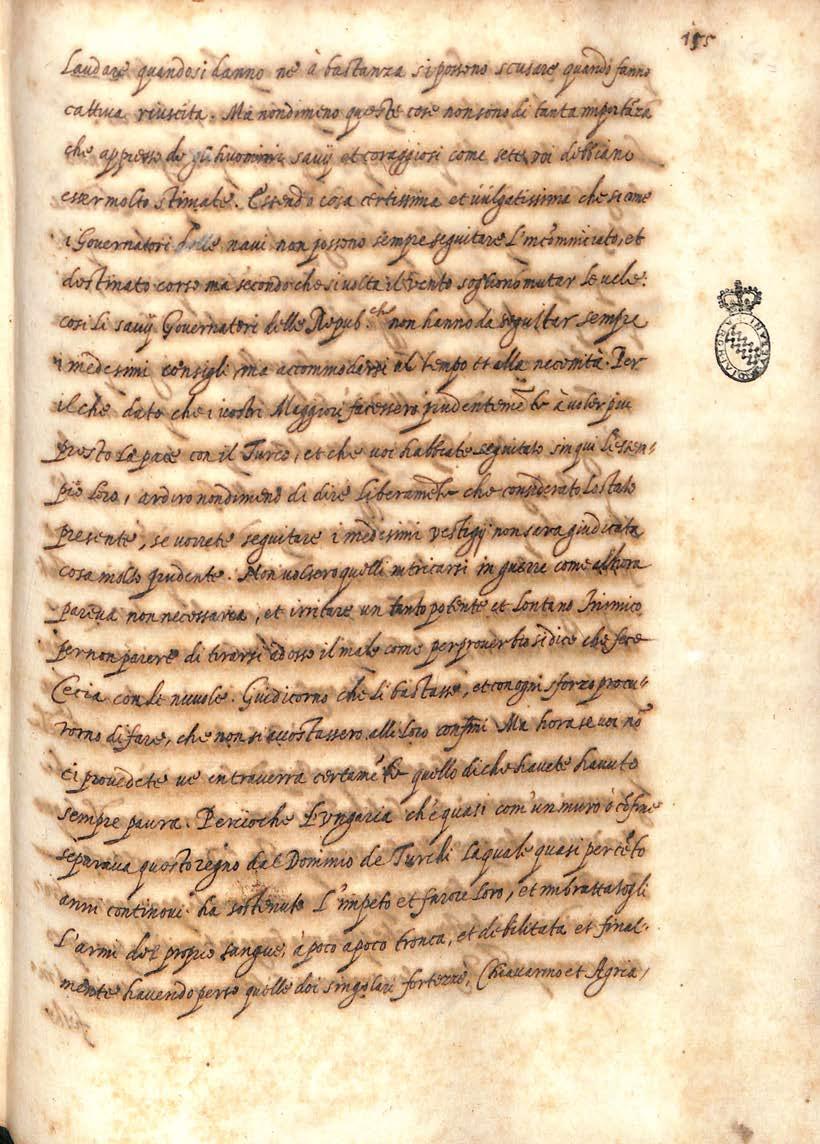 195
Laudare quando si danno ne à bastanza si possono scusare quando fanno
cattiva riuscita. Ma nondimeno queste cose non sono di tanta importāza
che appresso de gli huomini savij et coraggiosi come sete voi debbiano
esser molto stimate. Essendo cosa certissima et vulgatissima che si come
i Governatori delle navi non possono sempre seguitare l'incominciato, et
destinato corso ma secondo che si volta il vento sogliono mutar le vele:
cosi li savij Governatori delle Repub.che non hanno da seguitar sempre
i medesmi consigli, ma accommodarsi al tempo et alla necessità. Per
il che dato che i vostri Maggiori facessero prudentemēte à voler piu
presto la pace con il Turco, et che voi habbiate seguitato sin qui l'essem-
pio loro, ardiro nondimeno di dire liberamēte che considerato lo stato
presente, se vorrete seguitare i medesimi vestigij non sera giudicata
cosa molto prudente. Non volsero quelli intricarsi in guerre come allhora
pareva non necessaria, et irritare un tanto potente et lontano Inimico
per non parere di tirarsi adosso il male come per proverbio si dice che fece
Cecia con le nuvole. Giudicorno che li bastasse, et con ogni sforzo procu-
rorno di fare, che non si accostassero alli loro confini Ma hora se voi nō
ci provedete ve intraverra certamēte quello di che havete havuto
sempre paura. Percioche l'Vngaria ch'è quasi com'un muro ò cōfine
separava questo regno dal Dominio de Turchi la quale quasi per cēto
anni continovi ha sostenuto l'impeto et furore loro, et imbrattatogli
l'armi del proprio sangue, à poco a poco tronca, et debilitata et final-
mente havendo perso quelle doi singolari fortezze, Chiavarino et Agria,